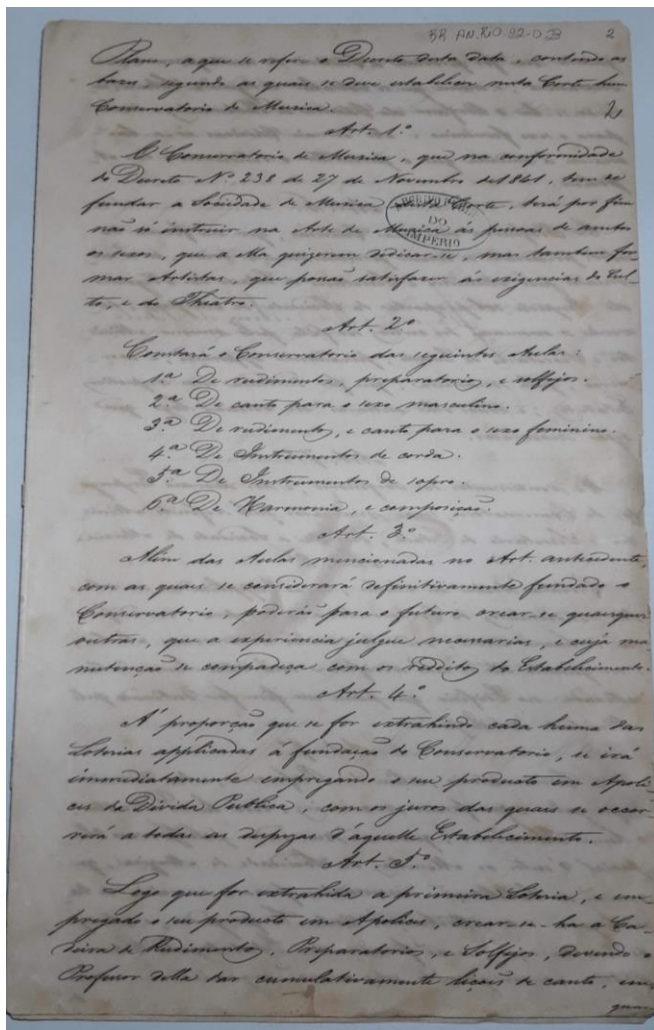 BR.AN.RIO.22.0.23
2
Plano, a que se refere o Decreto desta data, contendo as
bases, segundo as quais se deve estabelecer nesta Corte hum
Conservatorio de Musica.
2
Art. 1.º
O Conservatorio de Musica, que na conformidade
do Decreto N.º 238 de 27 de Novembro de 1841, tem de
fundar a Sociedade de Musica desta Corte, terá por fim
não só instruir na Arte de Musica ás pessoas de ambos
os sexos, que a ella quizerem dedicar-se, mas tambem for-
mar Artistas, que possaõ satisfazer ás exigencias do Cul-
to, e do Theatro.
DO
IMPERIO
Art. 2º
Constará o Conservatorio das seguintes Aulas:
1.ª De rudimentos, preparatorios, e solfejos.
2.ª De canto para o sexo masculino.
3.ª De rudimentos, e canto para o sexo feminino.
4.ª De Instrumentos de corda.
5.ª De Instrumentos de sopro.
6.ª De Harmonia, e composiçaõ.
Art. 3.º
Alem das Aulas mencionadas no Art. antecedente,
com as quais se considerará definitivamente fundado o
Conservatorio, poderáõ para o futuro crear-se quaesquer
outras, que a experiencia julgue necessarias, e cuja ma-
nutençaõ se compadeça com os redditos do Estabelecimento.
Art. 4.º
Á proporçaõ que se for extrahindo cada huma das
Loterias applicadas á fundaçaõ do Conservatorio, se irá
immediatamente empregando o seu producto em Apoli-
ces da Divida Publica, com os juros das quaes se occor-
rerá a todas as despezas d'aquelle Estabelecimento.
Art. 5.º
Logo que for extrahida a primeira Loteria, e em-
pregado o seu producto em Apolices, crear-se-ha a Ca-
deira de Rudimentos, Preparatorios, e Solfejos, devendo o
Professor della dar cumulativamente liçoes de canto, em-
quan-